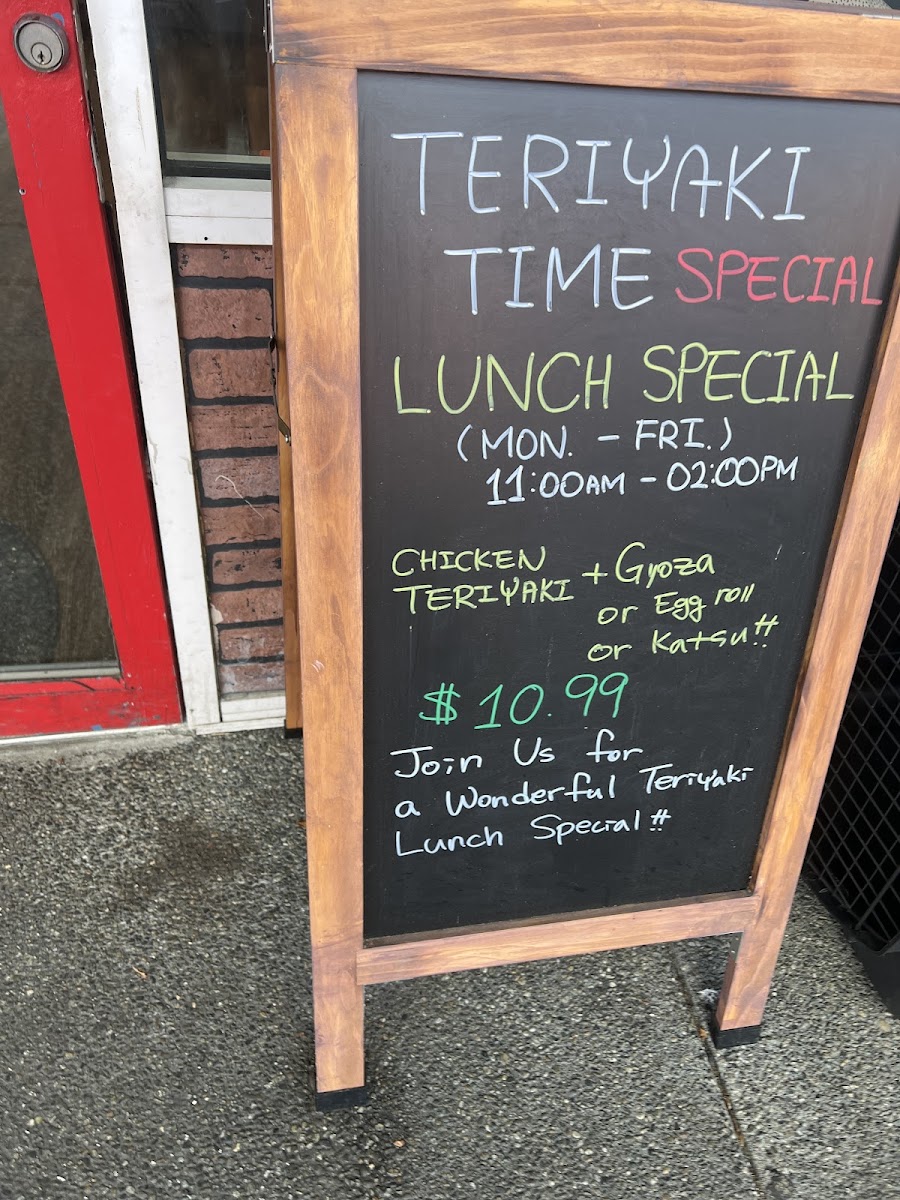 TERIYAKI
TIME SPECIAL
LUNCH SPECIAL
(MON. - FRI.)
11:00AM - 02:00PM
CHICKEN
TERIYAKI + Gyoza
or Egg roll
or Katsu!!
$10.99
Join Us for
a Wonderful Teriyaki
Lunch Special!!